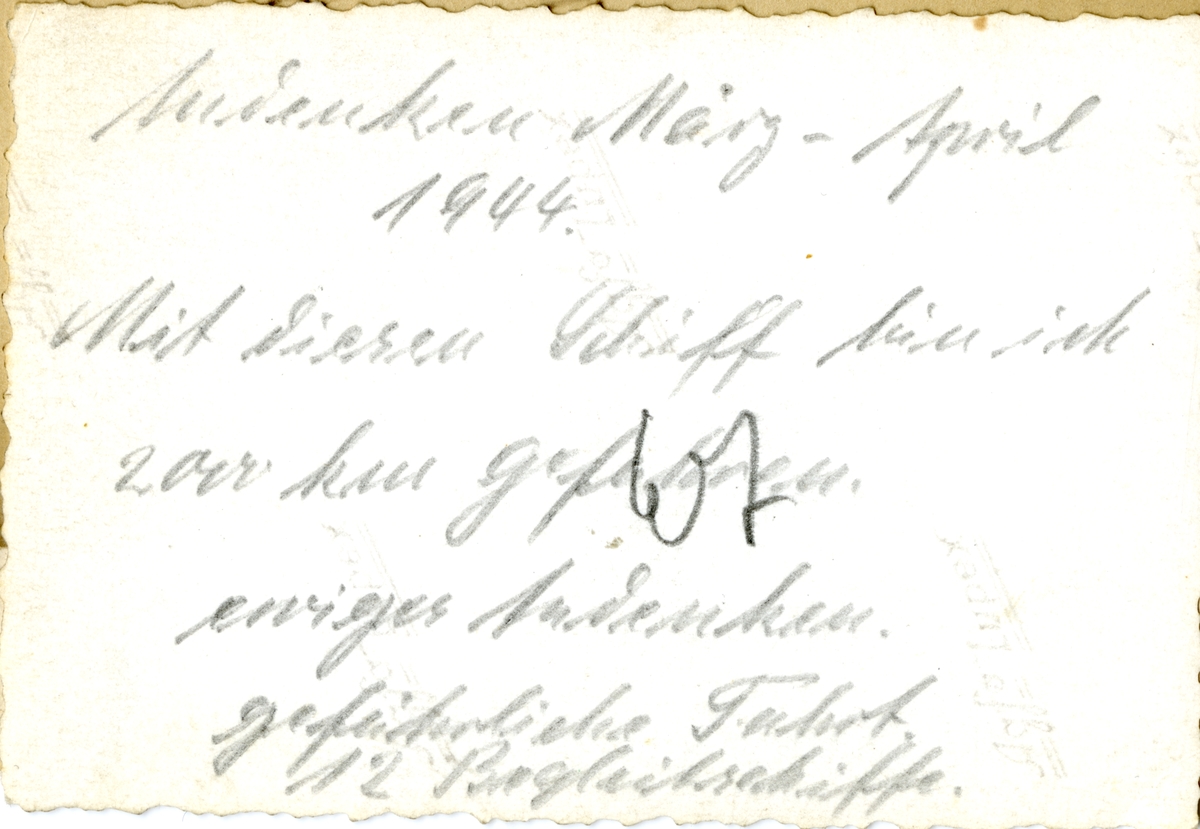 Andenken März - April
1944.
Mit diesen Schiff bin ich
2000 km gefahren.
ewiges Andenken.
gefährliche Fahrt.
12 Begleitschiffe.